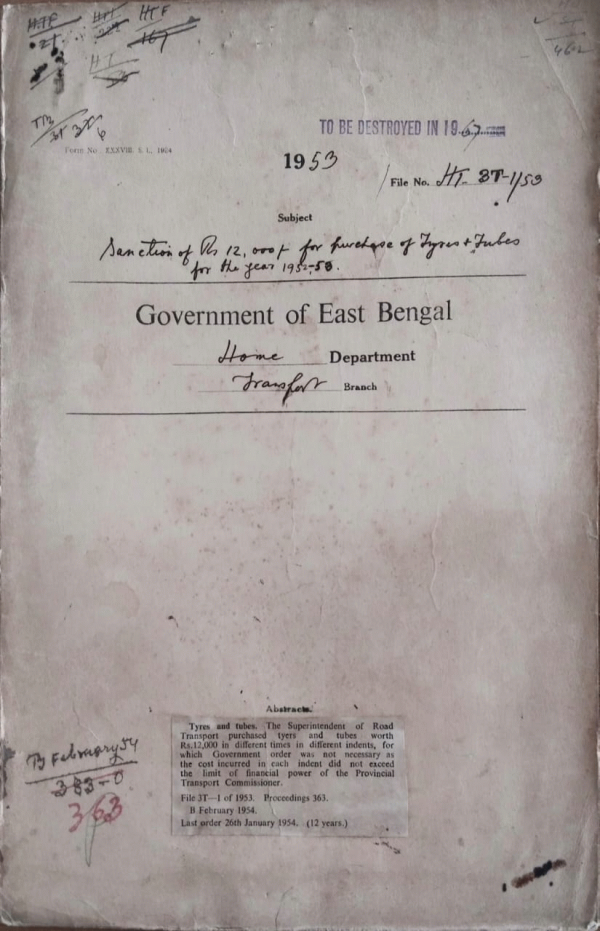 HTF
HTF
167
HT
TO BE DESTROYED IN 1967
Form No. XXXVIII. 1. 1., 1924
1953
File No. HT- 3T-1/53
Subject
Sanction of Rs 12,000/- for purchase of Tyres & Tubes
for the year 1952-53.
Government of East Bengal
Home Department
Transport Branch
Abstracts.
Tyres and tubes. The Superintendent of Road
Transport purchased tyers and tubes worth
Rs.12,000 in different times in different indents, for
which Government order was not necessary as
the cost incurred in each indent did not exceed
the limit of financial power of the Provincial
Transport Commissioner.
File 3T—1 of 1953. Proceedings 363.
B February 1954.
Last order 26th January 1954. (12 years.)
B February 54
363